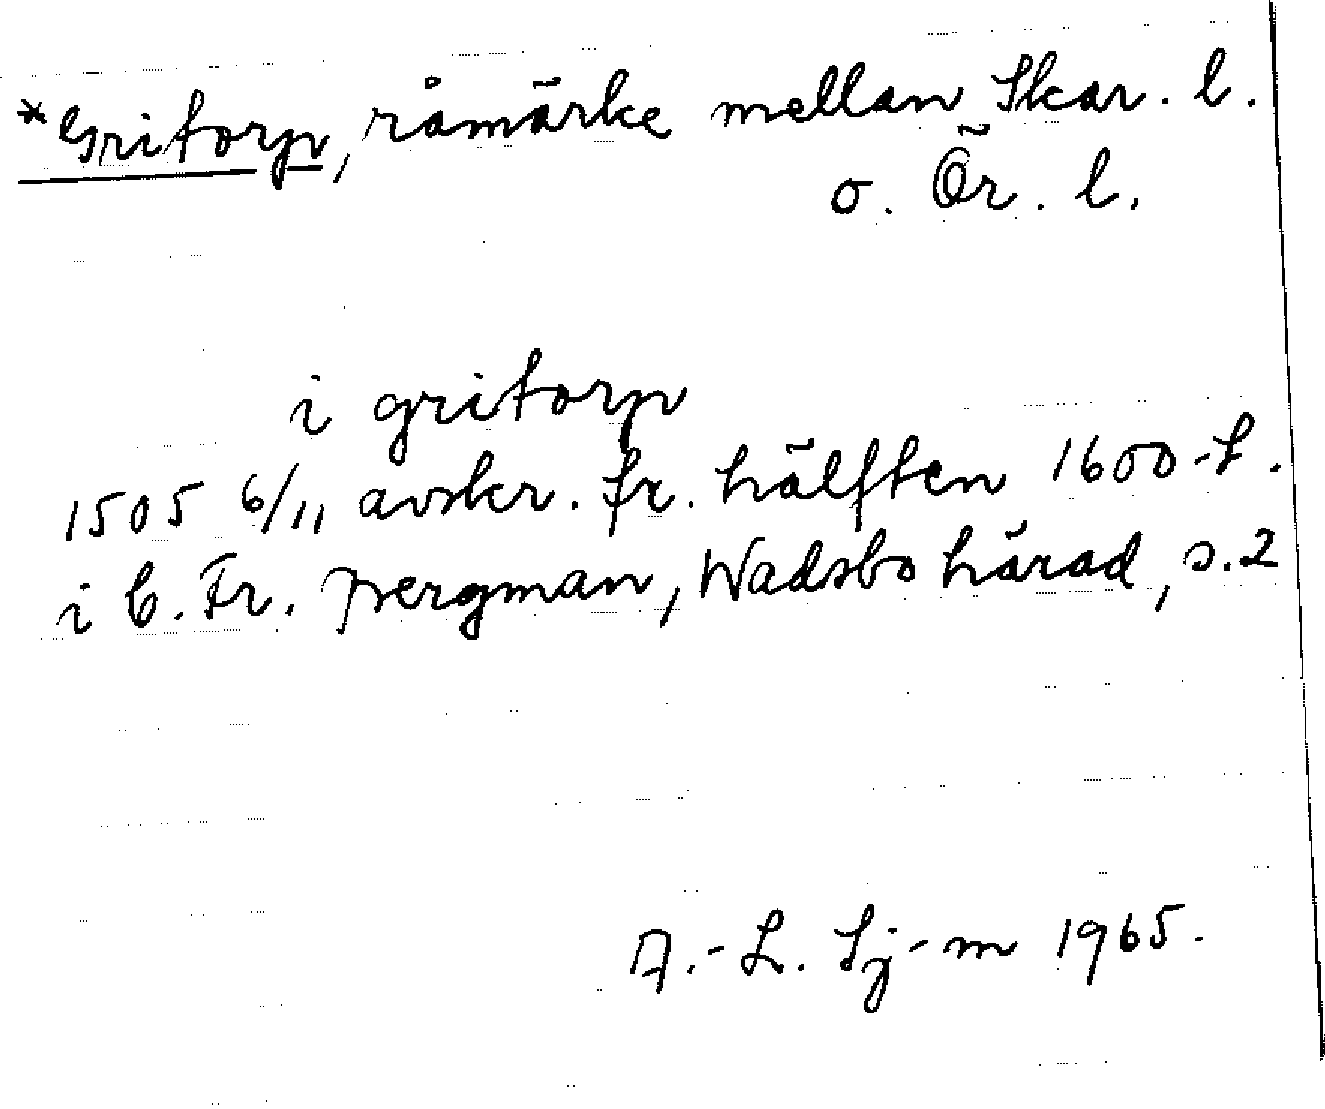 *Gritorp, råmärke mellan Skar. l.
o. Ör. l.
i gritorp
1505 6/11 avskr. fr. hälften 1600-t.
i C. Fr. Bergman, Wadsbo härad, s. 2
A.-L. Sj-m 1965.